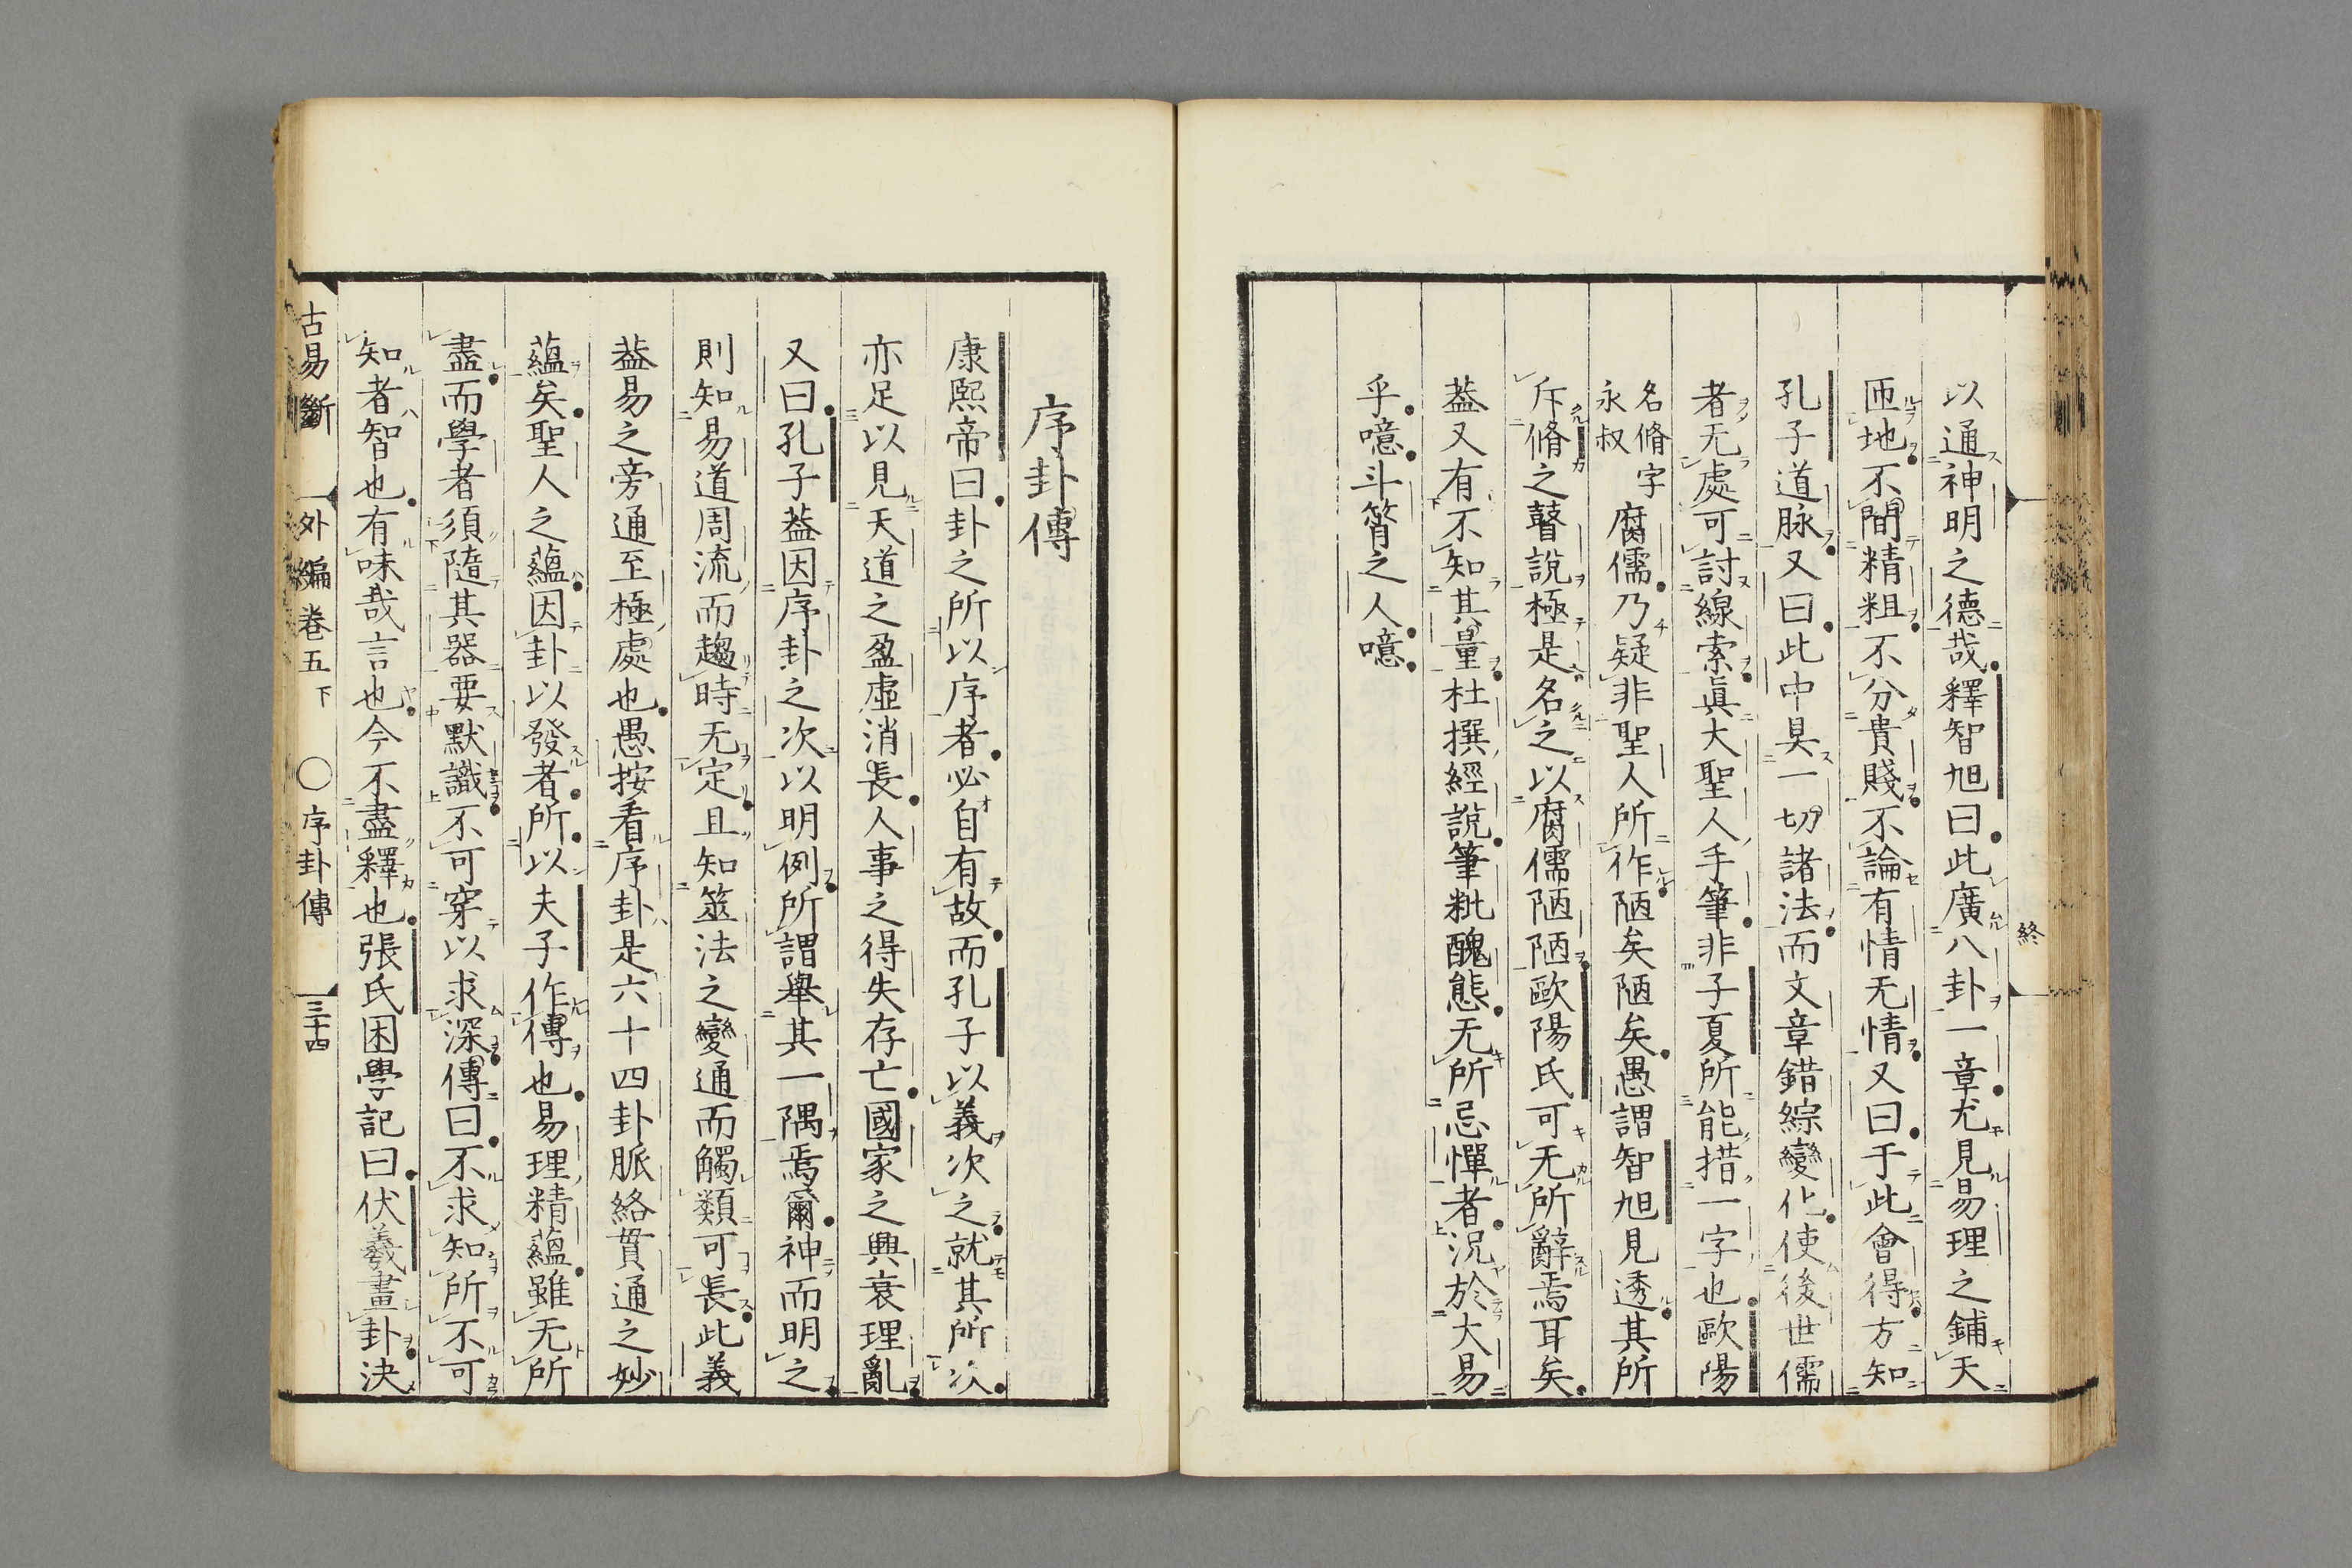 終
以通神明之德哉釋智旭曰此廣八卦一章尤見易理之鋪天
匝地不間精粗不分貴賤不論有情无情又曰于此會得方知
孔子道脉又曰此中具一切諸法而文章錯綜變化使後世儒
者无處可討線索眞大聖人手筆非子夏所能措一字也歐陽
名脩字
永叔
腐儒乃疑非聖人所作陋矣陋矣愚謂智旭見透其所
斥脩之瞽說極是名之以腐儒陋陋歐陽氏可无所辭焉耳矣
葢又有不知其量杜撰經說筆粃醜態无所忌憚者況於大易
乎噫斗筲之人噫
序卦傳
康熙帝曰卦之所以序者必自有故而孔子以義次之就其所次
亦足以見天道之盈虛消長人事之得失存亡國家之興衰理亂
又曰孔子葢因序卦之次以明例所謂舉其一隅焉爾神而明之
則知易道周流而趨時无定且知筮法之變通而觸類可長此義
葢易之旁通至極處也愚按看序卦是六十四卦脈絡貫通之妙
蘊矣聖人之蘊因卦以發者所以夫子作傳也易理精蘊雖无所
盡而學者須隨其器要默識不可穿以求深傳曰不求知所不可
知者智也有味哉言也今不盡釋也張氏困學記曰伏羲畫卦決
古易斷 外編卷五下 〇序卦傳 三十四